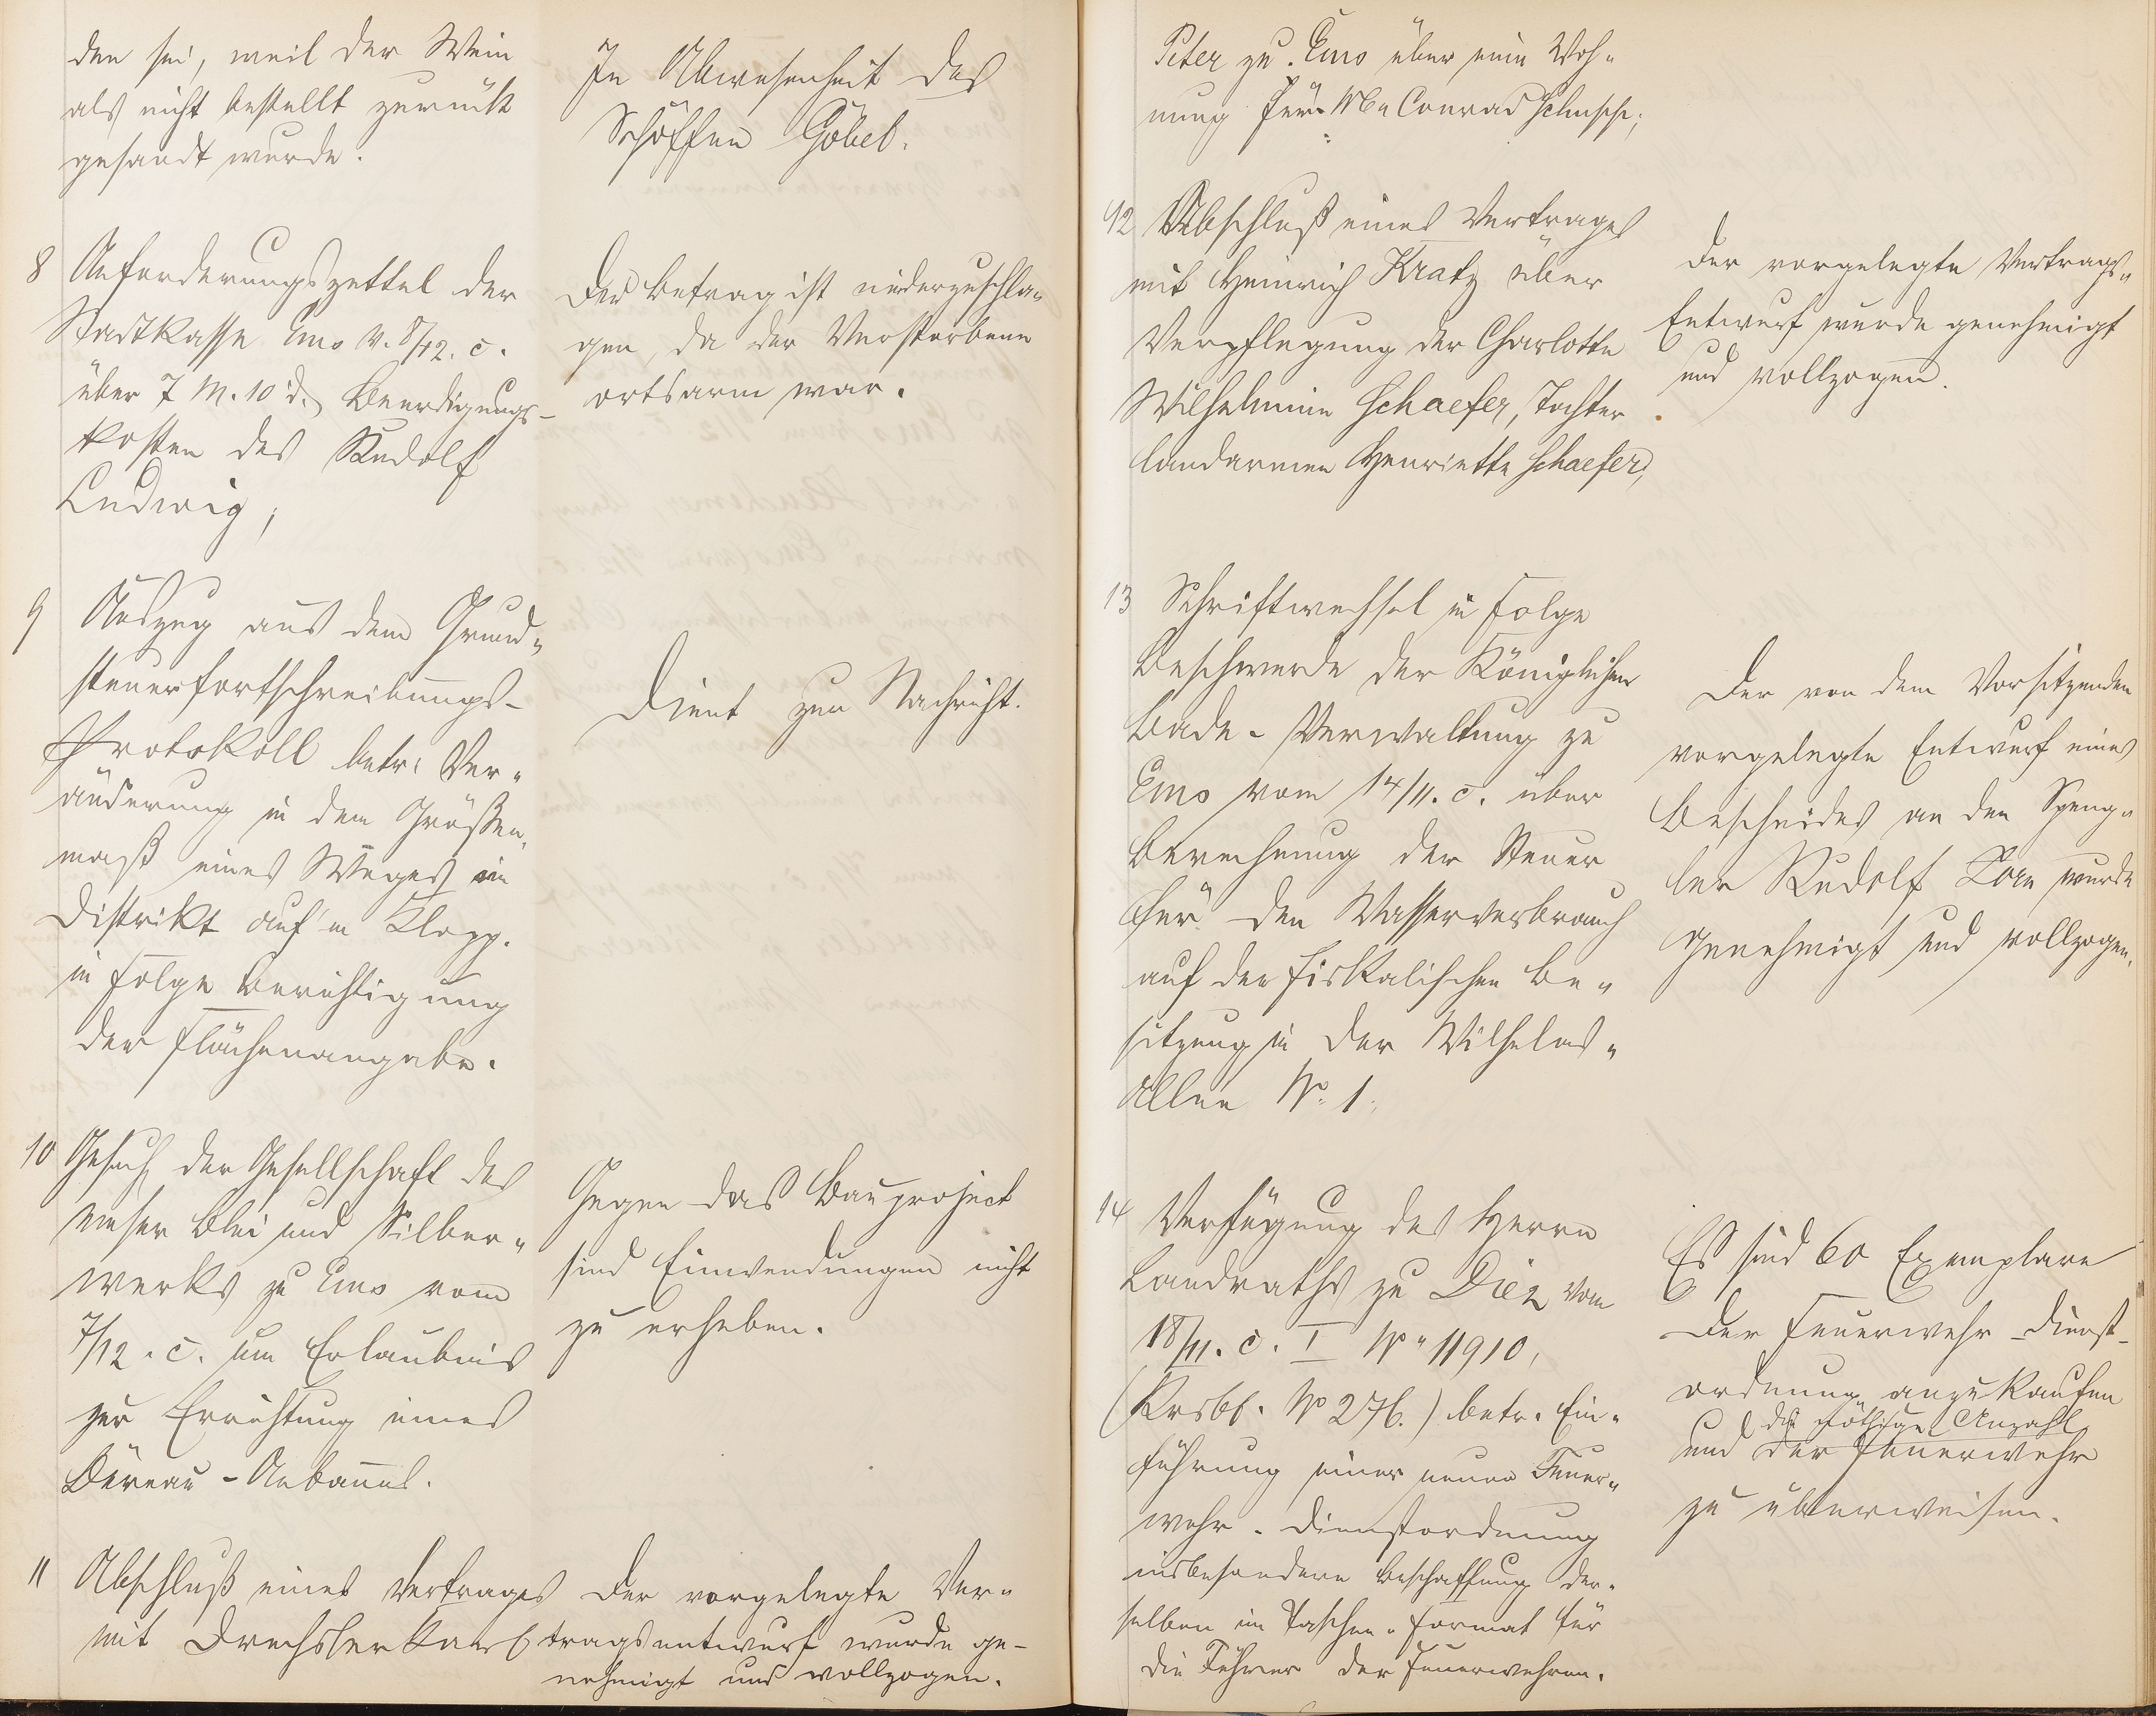 den sei, weil der Wein
als nicht bestellt zurück
gesandt wurde.
In Abwesenheit des
Schöffen Göbel.
8 Anforderungszettel der
Stadtkasse Ems v. 8/12. c.
über 7 M. 10 d. Beerdigungs-
kosten des Rudolf
Ludwig;
Der Betrag ist niederzuschla-
gen, da der Verstorbene
ortsarm war.
9 Auszug aus dem Grund-
steuerfortschreibungs-
Protokoll betr. Ver-
änderung in dem Größen-
maß eines Weges im
Distrikt auf'm Klopp.
in Folge Berichtigung
der Flächenangabe.
Dient zur Nachricht.
10 Gesuch der Gesellschaft des
Emser Blei und Silber-
werks zu Ems vom
7/12. c. um Erlaubnis
zur Errichtung eines
Büreau-Anbaues.
Gegen das Bauproject
sind Einwendungen nicht
zu erheben.
11 Abschluß eines Vertrages
mit Drechsler Karl
Der vorgelegte Ver-
tragsentwurf wurde ge-
nehmigt und vollzogen.
Peter zu Ems über eine Woh-
nung für Conrad
12 Abschluß eines Vertrages
mit Heinrich Kratz über
Verpflegung der Charlotte
Wilhelmine Schaefer, Tochter
landarmen Henriette Schaefer,
Der vorgelegte Vertrags-
Entwurf wurde genehmigt
und vollzogen.
13 Schriftwechsel in Folge
Beschwerde der Königlichen
Bade-Verwaltung zu
Ems vom 14/11. c. über
Berechnung der Steuer
für den Wasserverbrauch
auf der fiskalischen Be-
sitzung in der Wilhelms-
Allee No. 1.
Der von dem Vorsitzenden
vorgelegte Entwurf eines
Bescheides an den Speng-
ler Rudolf Korn wurde
genehmigt und vollzogen.
14 Verfügung des Herrn
Landraths zu Diez vom
18/11. c. I No 11910,
(Krsbl. No 276.) betr. Ein-
führung einer neuen Feuer-
wehr-Dienstordnung
insbesondere Beschaffung der-
selben im Taschen-Format für
die Führer der Feuerwehren.
Es sind 60 Exemplare
der Feuerwehr-Dienst-
ordnung anzukaufen
die nöthige Anzahl
und der Feuerwehr
zu überweisen.